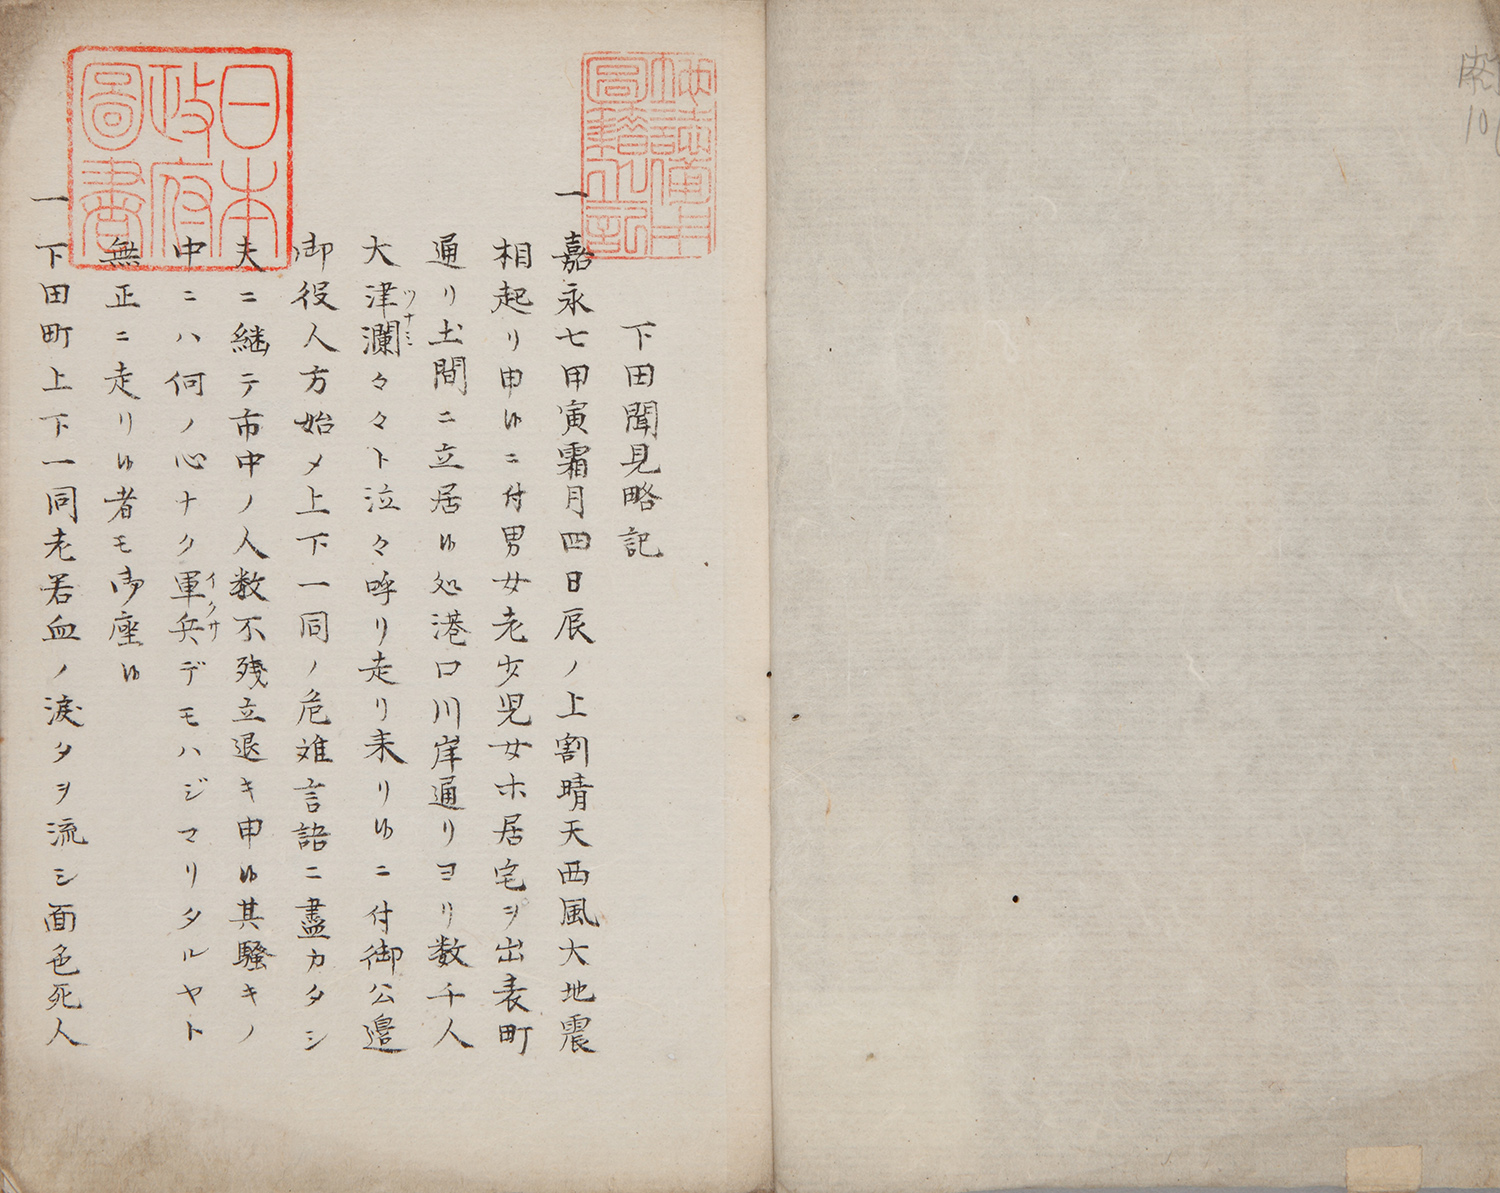 下田聞見略記
一嘉永七甲寅霜月四日辰ノ上割晴天西風大地震
相起リ申候ニ付男女老少児女ホ居宅ヲ出表町
通リ土間ニ立居候処港口川岸通リヨリ数千人
大津瀾々々ト泣々呼リ走リ来リ候ニ付御公邉
ツナミ
御役人方始メ上下一同ノ危難言語ニ盡カタシ
夫ニ継テ市中ノ人数不残立退キ申候其騒キノ
中ニハ何ノ心ナク軍兵デモハジマリタルヤト
イクサ
無正ニ走リ候者モ御座候
一下田町上下一同老若血ノ涙タヲ流シ面色死人
日本政府圖書
地誌備用圖籍之記